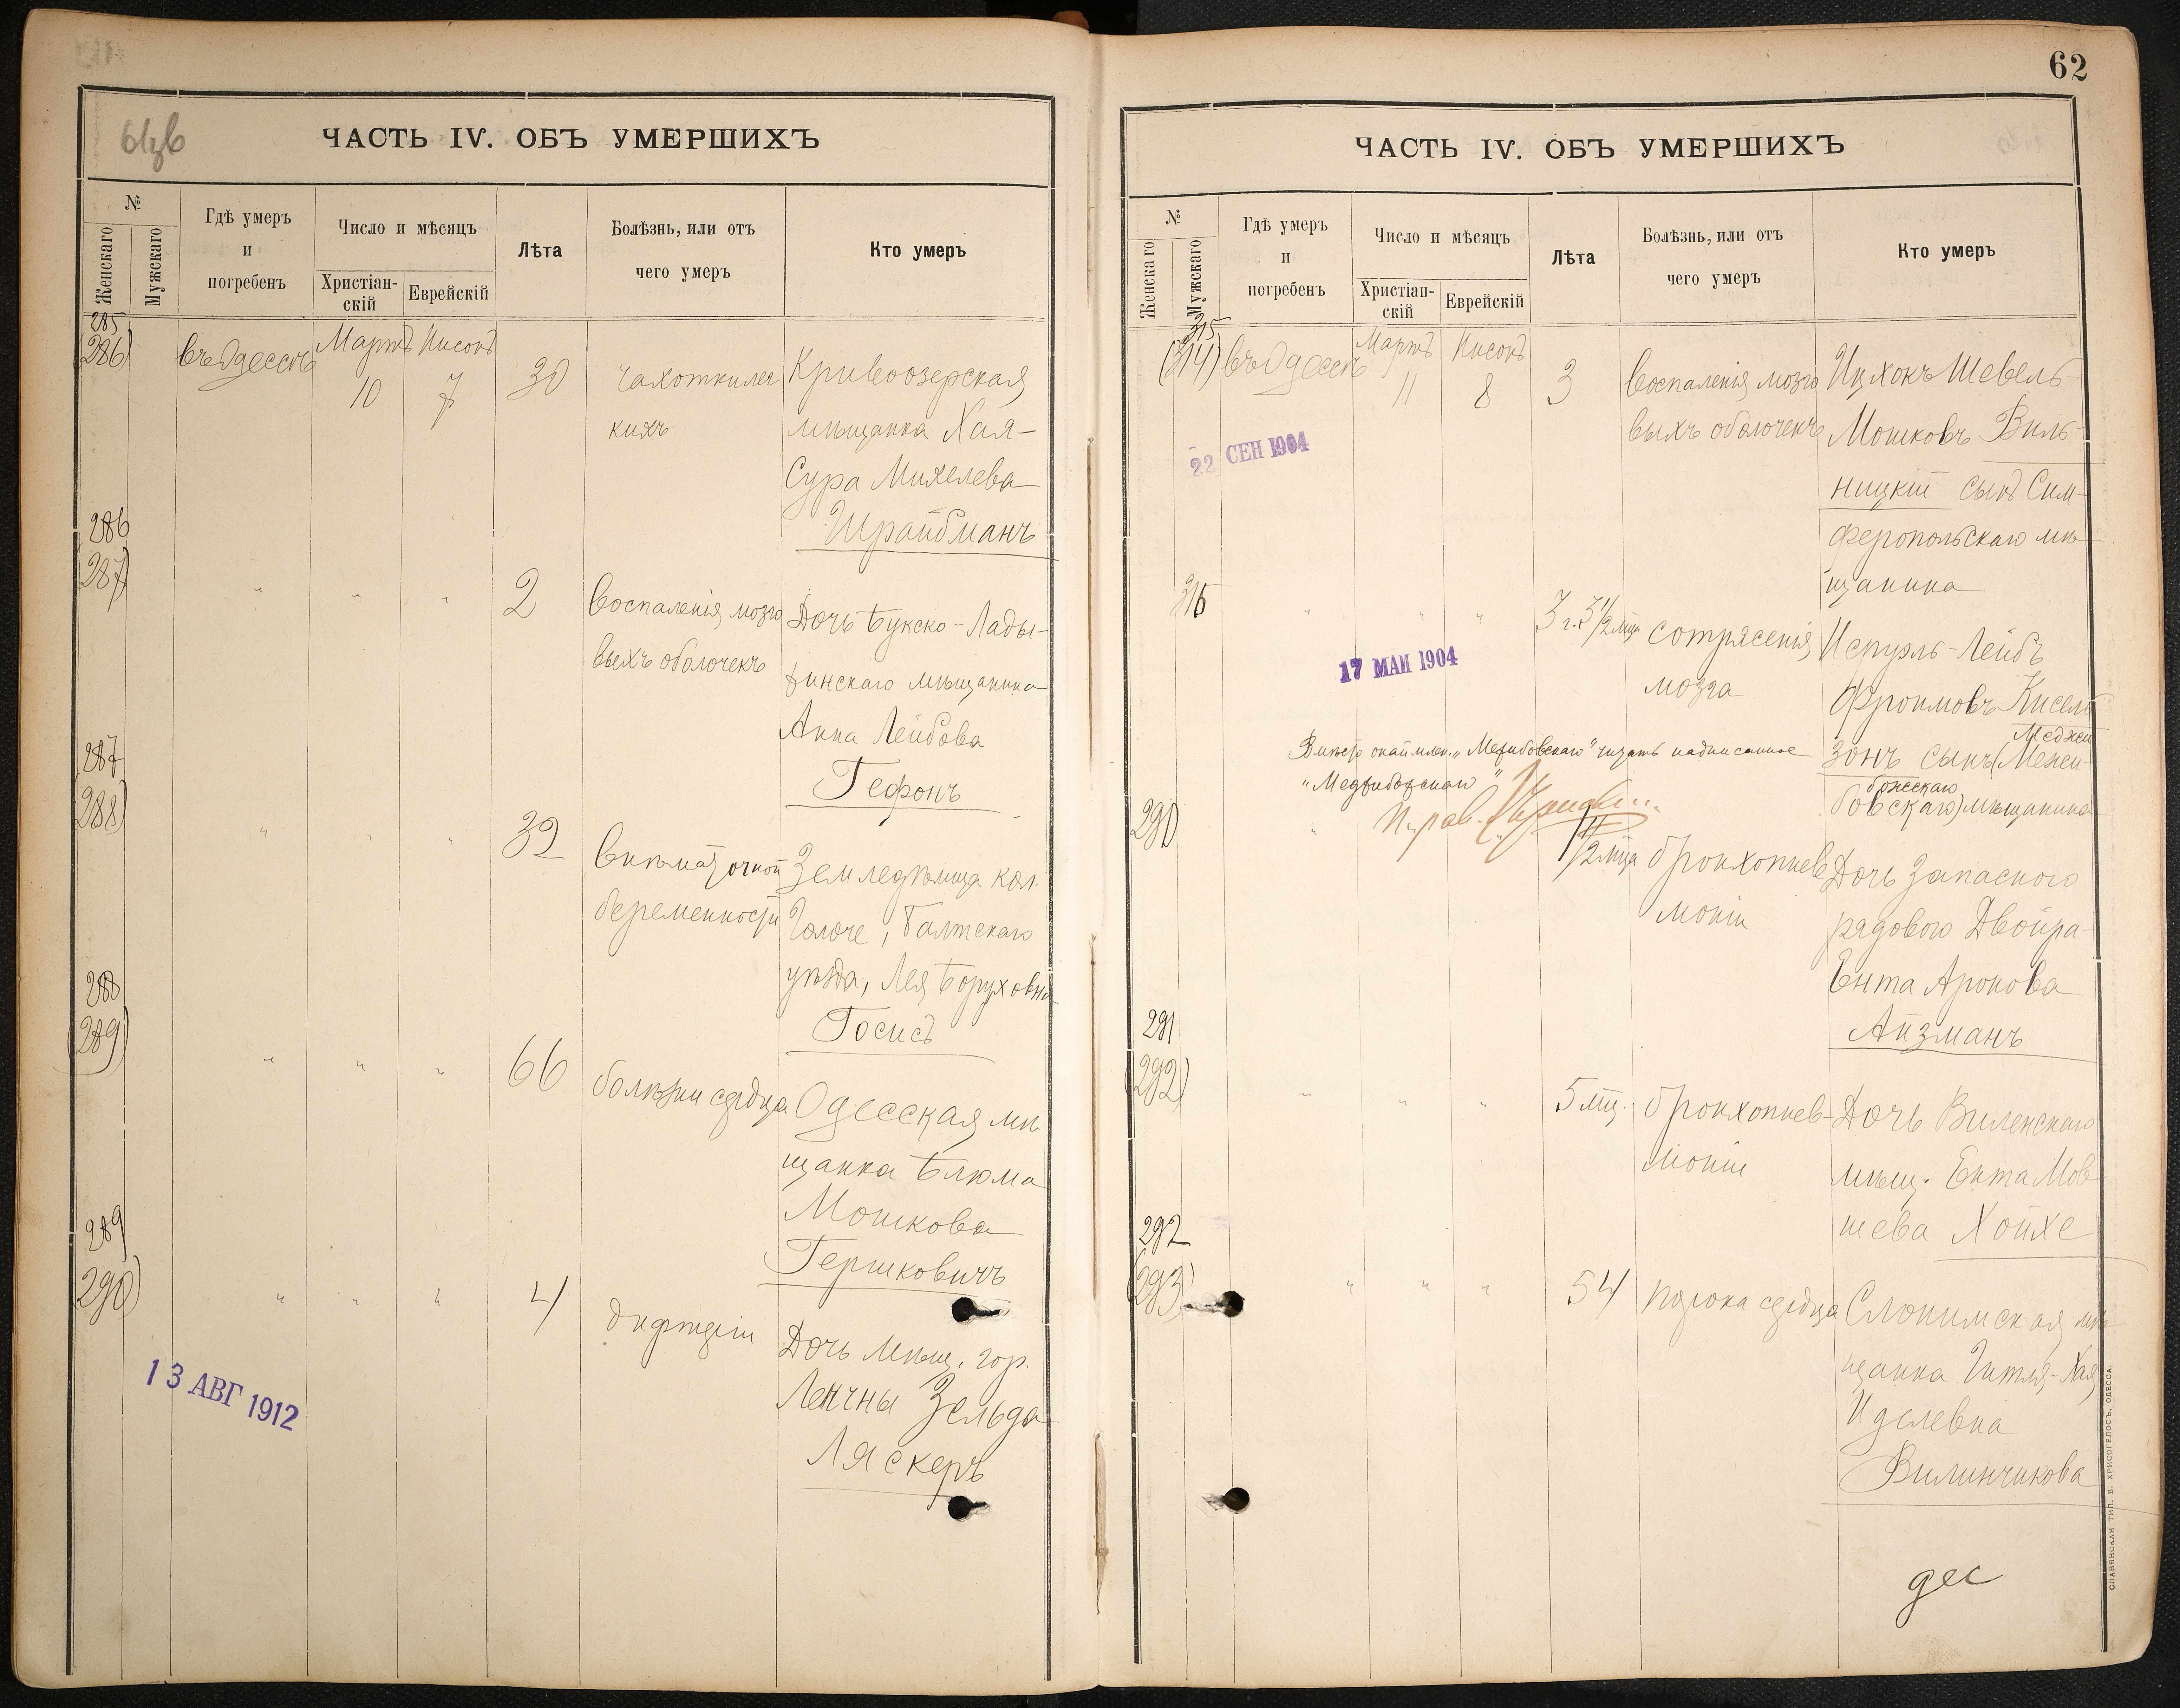 62
ЧАСТЬ IV. ОБЪ УМЕРШИХЪ
№
Женскаго
Мужскаго
Гдѣ умеръ
и
погребенъ
Число и мѣсяцъ
Христіан-
скій
Еврейскій
Лѣта
Болѣзнь, или отъ
чего умеръ
Кто умеръ
285
(286)
въ Одессѣ
Мартъ
10
Нисонъ
7
30
чахотки лег
кихъ
Кривоозерская
мѣщанка Хая-
Сура Михелева
Шрайбманъ
286
287)
" " "
2
воспаленія мозго
выхъ оболочекъ
Дочь Букско-Лады-
жинскаго мѣщанина
Анна Лейбова
Гефонъ
287
288)
" " "
32
внѣматочной
беременности
Земледѣлица кол.
Балтскаго
уѣзда, Лея Боруховна
Госисъ
288
(289)
" " "
66
болѣзни сердца
Одесская мѣ
щанка Блюма
Мошкова
Гершковичъ
289
290)
" " "
4
дифтеріи
Дочь мѣщ. гор.
Ленчны Зельда
Ляскеръ
13 АВГ 1912
ЧАСТЬ IV. ОБЪ УМЕРШИХЪ
№
Женскаго
Мужскаго
Гдѣ умеръ
и
погребенъ
Число и мѣсяцъ
Христіан-
скій
Еврейскій
Лѣта
Болѣзнь, или отъ
чего умеръ
Кто умеръ
315
(314)
въ Одессѣ
Мартъ
11
Нисонъ
8
3
воспаленія мозго
выхъ оболочекъ
Ицхокъ Шевель
Мошковъ Виль-
ницкій сынъ Сим-
феропольскаго мѣ
щанина
22 СЕН 1904
316
" " "
3 г. 3 1/2 мѣц
сотрясенія
мозга
Исруэль-Лейбъ
Фроимовъ Кисель
Меджи
зонъ сынъ (Межи-
божскаго
бовскаго) мѣщанина
17 МАИ 1904
Вмѣсто читать надписанное
290
" "
1 1/2 мѣца
бронхопнев
моніи
Дочь запаснаго
рядового Двойра-
Ента Аронова
Айзманъ
291
(292)
" " "
5 мѣц.
бронхопнев-
моніи
Дочь Виленскаго
мѣщ. Ента Мов
шева Хойхе
292
(293)
" " "
54
порока сердца
Слонимская мѣ
щанка Гитля-Хая
Иделевна
Вилинчикова
СЛАВЯНСКАЯ ТИП. Е. ХРИСОГЕЛОСЪ, ОДЕССА.